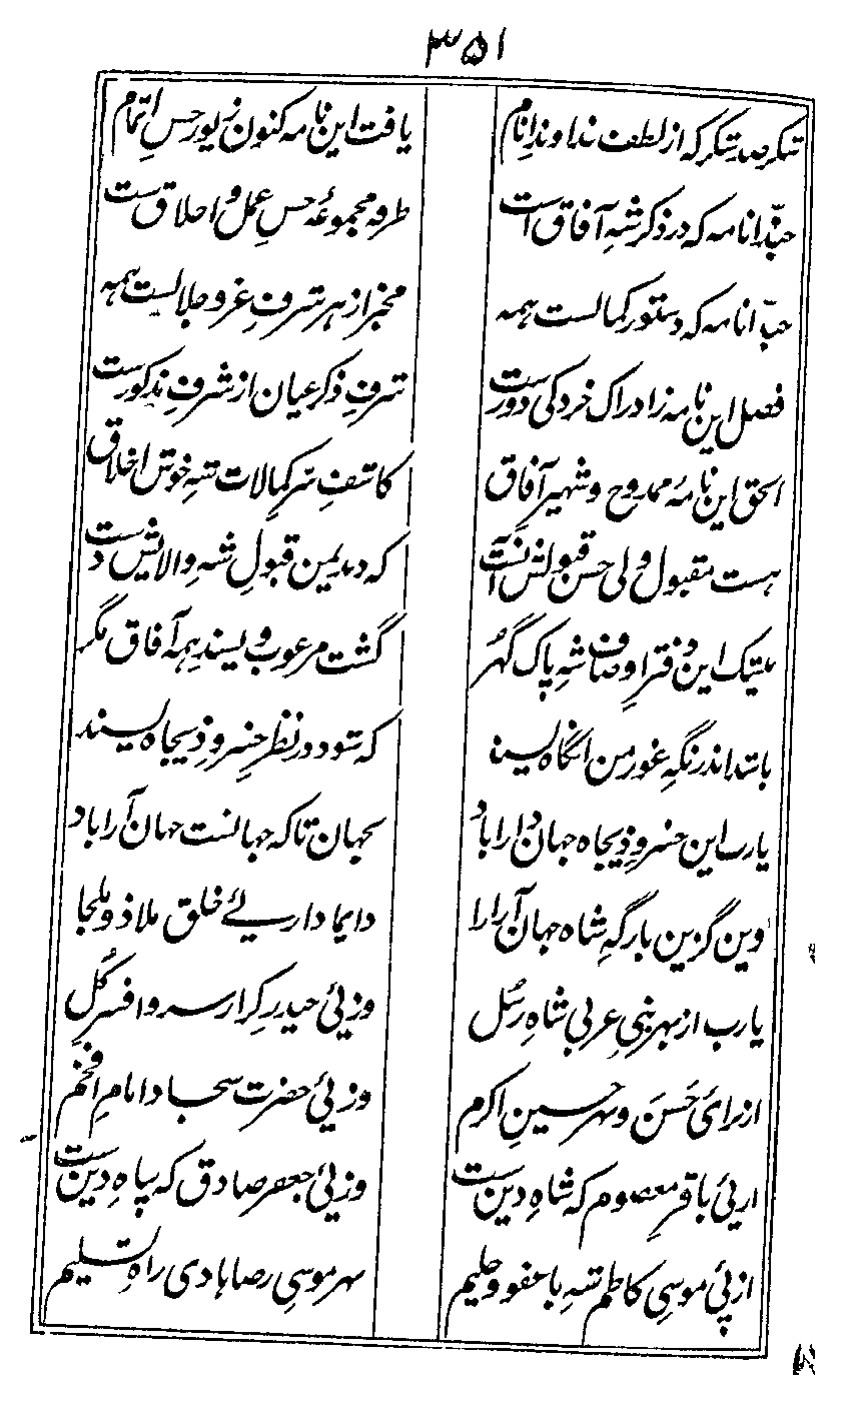 ۳۵۱
شکر صد شکر که از لطف خداوند انام یافت این نامه کنون زیور حسن اتمام
حبّذا نامه که در ذکر شه آفاق است طرفه مجموعهٔ حسن عمل و اخلاق است
حبّذا نامه که دستور کمالست همه مخبر از هر شرف عز و جلالست همه
فضل این نامه ز ادراک خرد کی دورست شرف ذکر عیان از شرف مذکورست
الحق این نامهٔ ممدوح و شهیر آفاق کاشف سر کمالات شه خوش اخلاق
هست مقبول ولی حسن قبولش آنست که در یمن قبول شه والا شدست
بیشک این دفتر اوصاف شه پاک گهر گشت مرغوب و پسند همه آفاق مگر
باشد اندر نگه غور من انگاه پسند که شود در نظر خسرو ذیجاه پسند
یارب این خسرو ذیجاه جهان دارا باد بجهان تا که جهانست جهان آرا باد
وین گزین بارگه شاه جهان آرا را دایما دار پئے خلق ملاذ و ملجا
یارب از بهر نبی عربی شاه رسُل وز پئ حیدر کرار سر و افسر کُل
از برائ حَسَن و بهر حسین اکرم وز پئ حضرت سجاد امام افخم
از پئ باقر معصوم که شاه دین ست وز پئ جعفر صادق که پناه دین ست
از پئ موسی کاظم شه با عفو و حلیم بهر موسی رضا هادی راه تسلیم